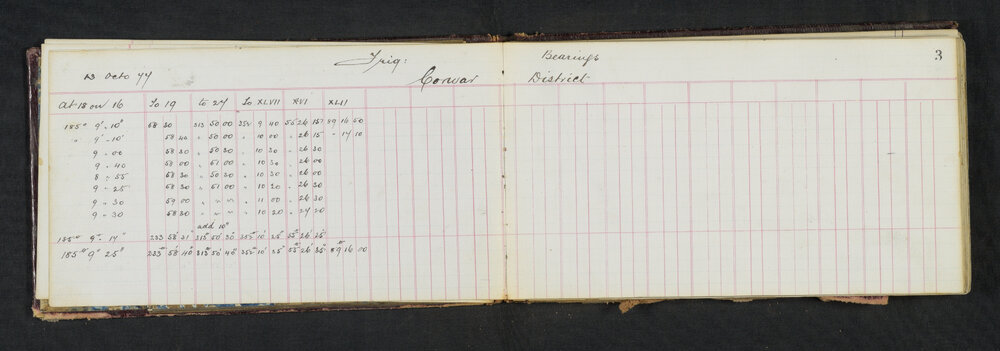 Trig: Bearings 3
13 Octo 77 Corwar District
At 18 on 16 To 19 to 27 To XLVII XVI XLII
185° 9' 10" 58 30 313 50 00 352 9 40 55 26 15 89 16 50
" 9' 10' 58 40 " 50 00 " 10 00 " 26 15 " 17 10
9 " 00 58 30 " 50 30 " 10 30 " 26 30
9 " 40 58 00 " 51 00 " 10 30 " 26 00
8 " 55 58 30 " 50 30 " 10 30 " 26 00
9 " 25 58 30 " 51 00 " 10 20 " 26 30
9 " 30 59 00 " " " " 11 00 " 26 30
9 " 30 58 30 " " " " 10 20 " 27 20
add 10"
185° 9' 14" 233 58' 31" 313° 50' 30" 352° 10' 25" 55° 26' 25"
185° 9' 25" 233° 58' 40" 313° 50' 40" 352° 10' 35" 55° 26' 35" 89° 16 00